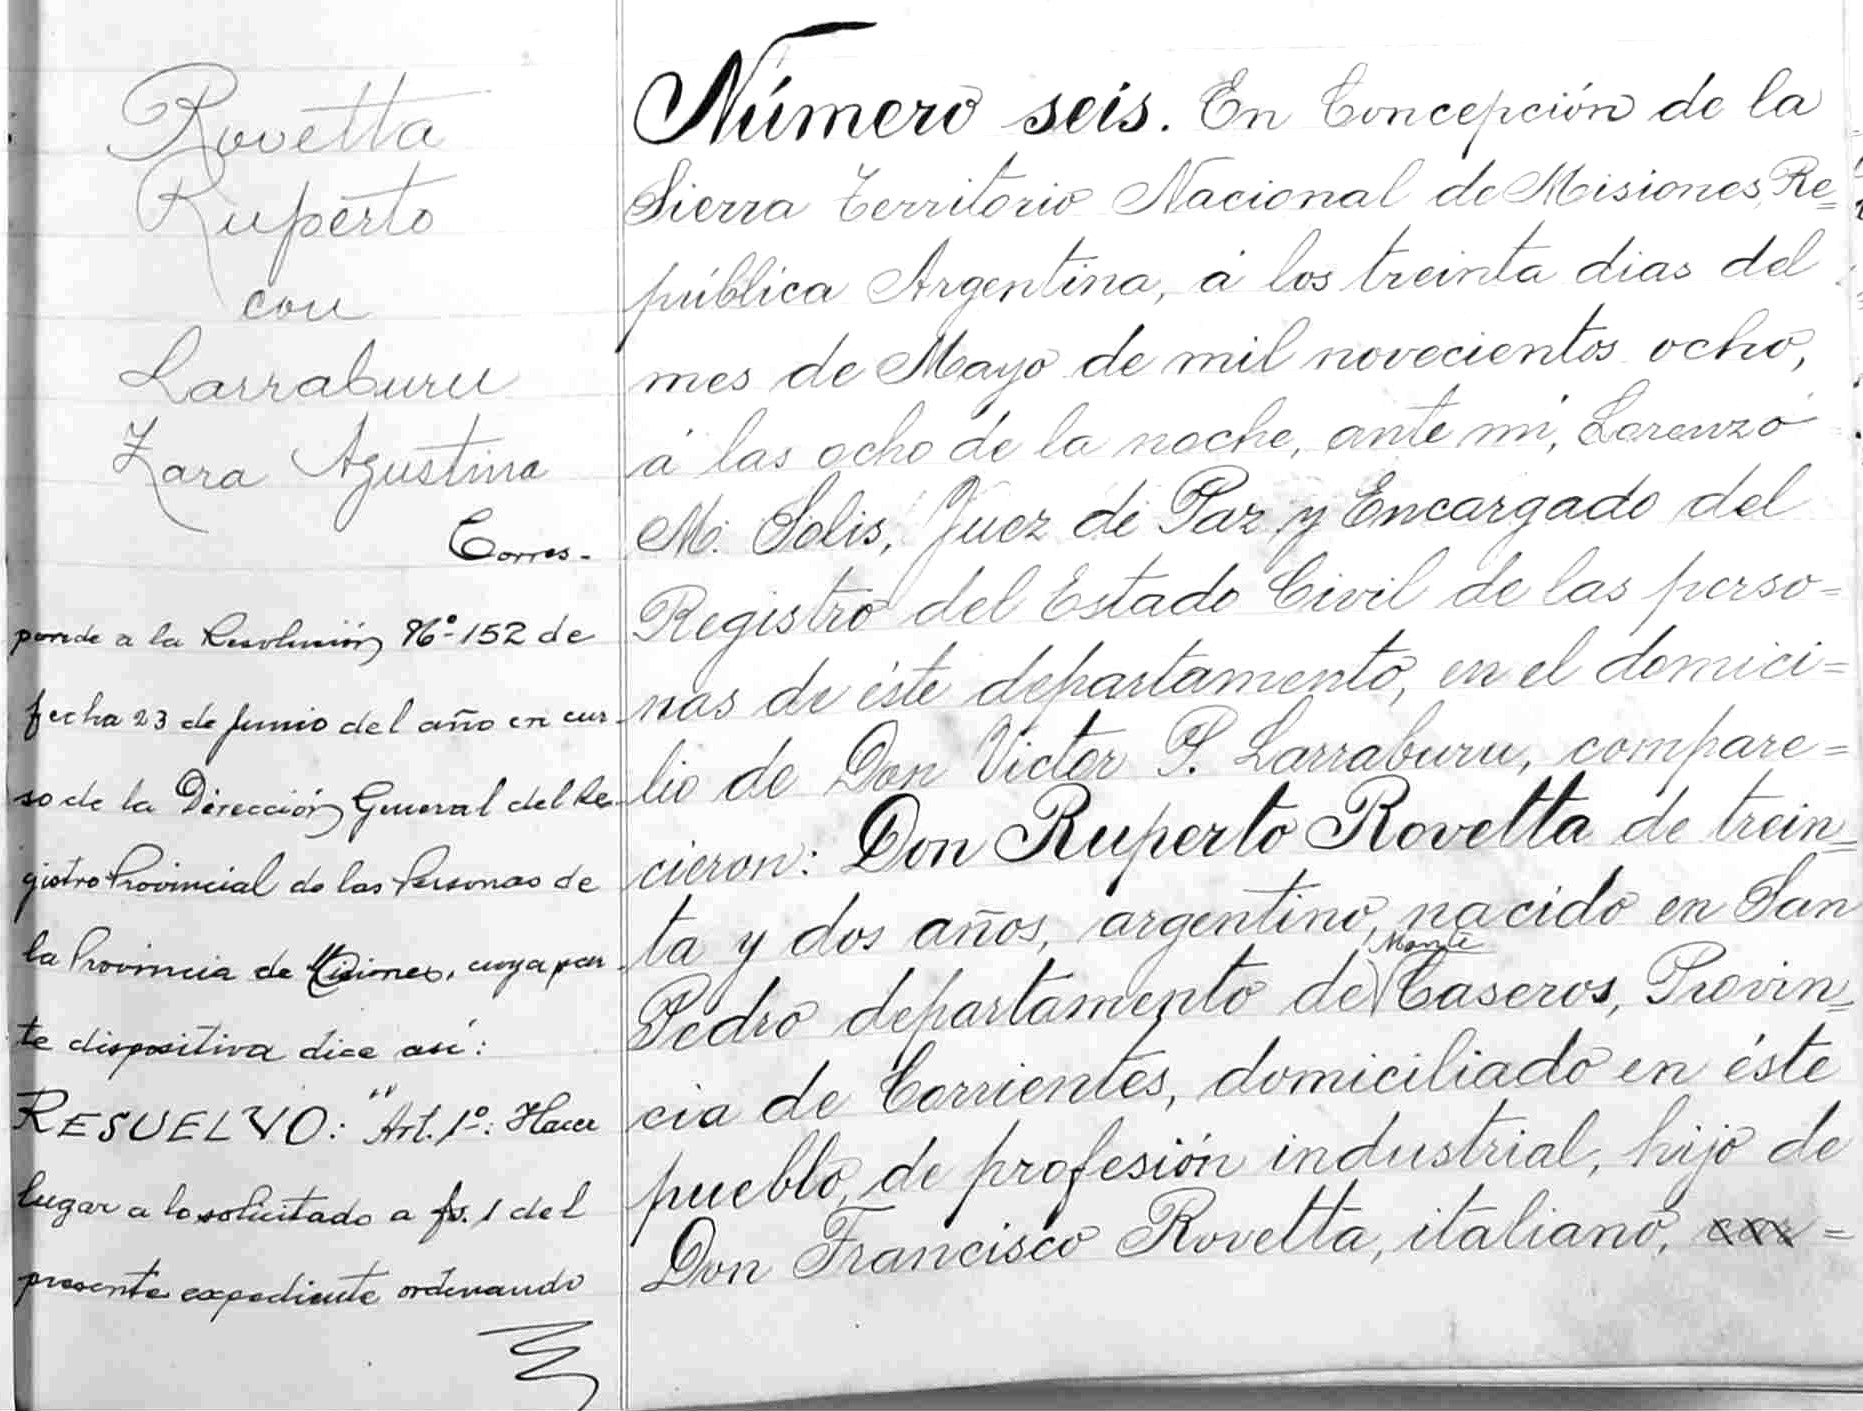 Rovetta
Ruperto
con
Larraburu
Zara Agustina
Corres-
ponde a la Resolución Nº-152 de
fecha 23 de Junio del año en cur-
so de la Dirección General del Re-
gistro Provincial de las Personas de
la Provincia de Misiones, cuya par-
te dispositiva dice así:
RESUELVO: "Art. 1º: Hacer
lugar a lo solicitado a fs. 1 del
presente expediente ordenando
Número seis. En Concepción de la
Sierra Territorio Nacional de Misiones, Re=
pública Argentina, á los treinta dias del
mes de Mayo de mil novecientos ocho,
á las ocho de la noche, ante mí, Lorenzo
M. Solis, Juez de Paz y Encargado del
Registro del Estado Civil de las perso=
nas de éste departamento, en el domici=
lio de Don Victor P. Larraburu, compare=
cieron: Don Ruperto Rovetta de trein=
ta y dos años, argentino, nacido en San
Monte
Pedro departamento de Caseros, Provin=
cia de Corrientes, domiciliado en éste
pueblo, de profesión industrial, hijo de
Don Francisco Rovetta, italiano, =